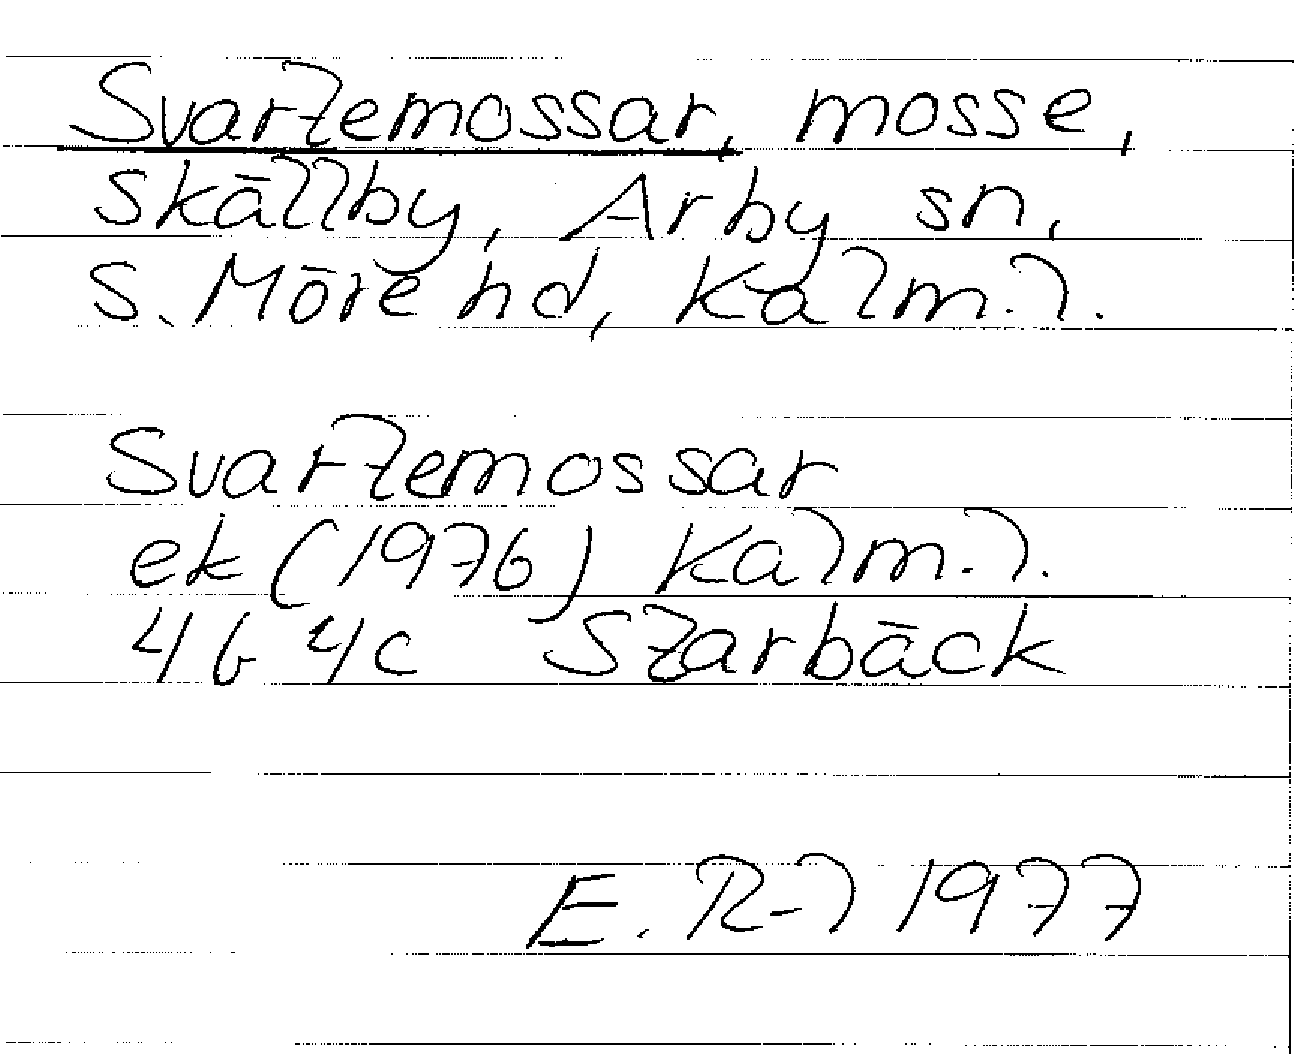 Svartemossar, mosse,
Skällby, Arby sn,
S. Möre hd, Kalm. l.
Svartemossar
ek (1976) Kalm. l.
4G 4c Starbäck
E. R-l 1977